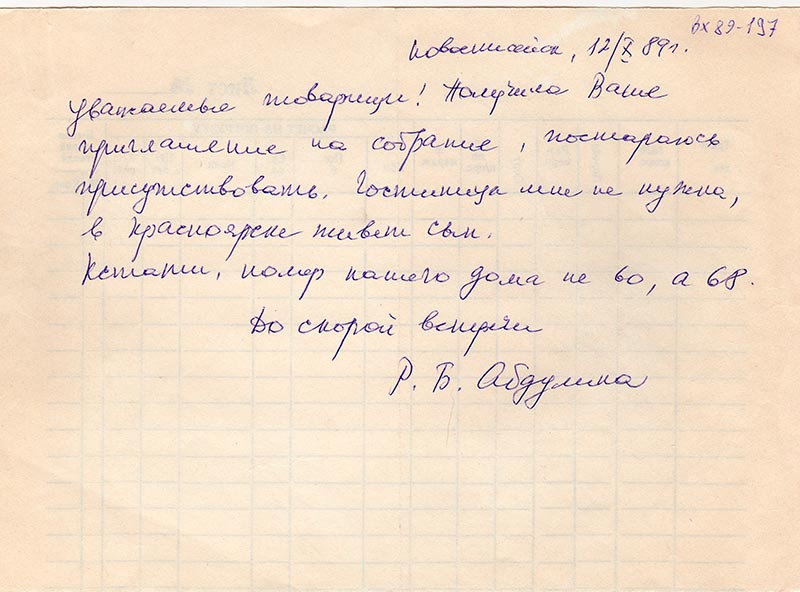 вх 89-197
Новоенисейск, 12/X 89г.
Уважаемые товарищи! Получила Ваше
приглашение на собрание, постараюсь
присутствовать. Гостиница мне не нужна,
в Красноярске живет сын.
Кстати, номер нашего дома не 60, а 68.
До скорой встречи
Р. Б. Абдулина